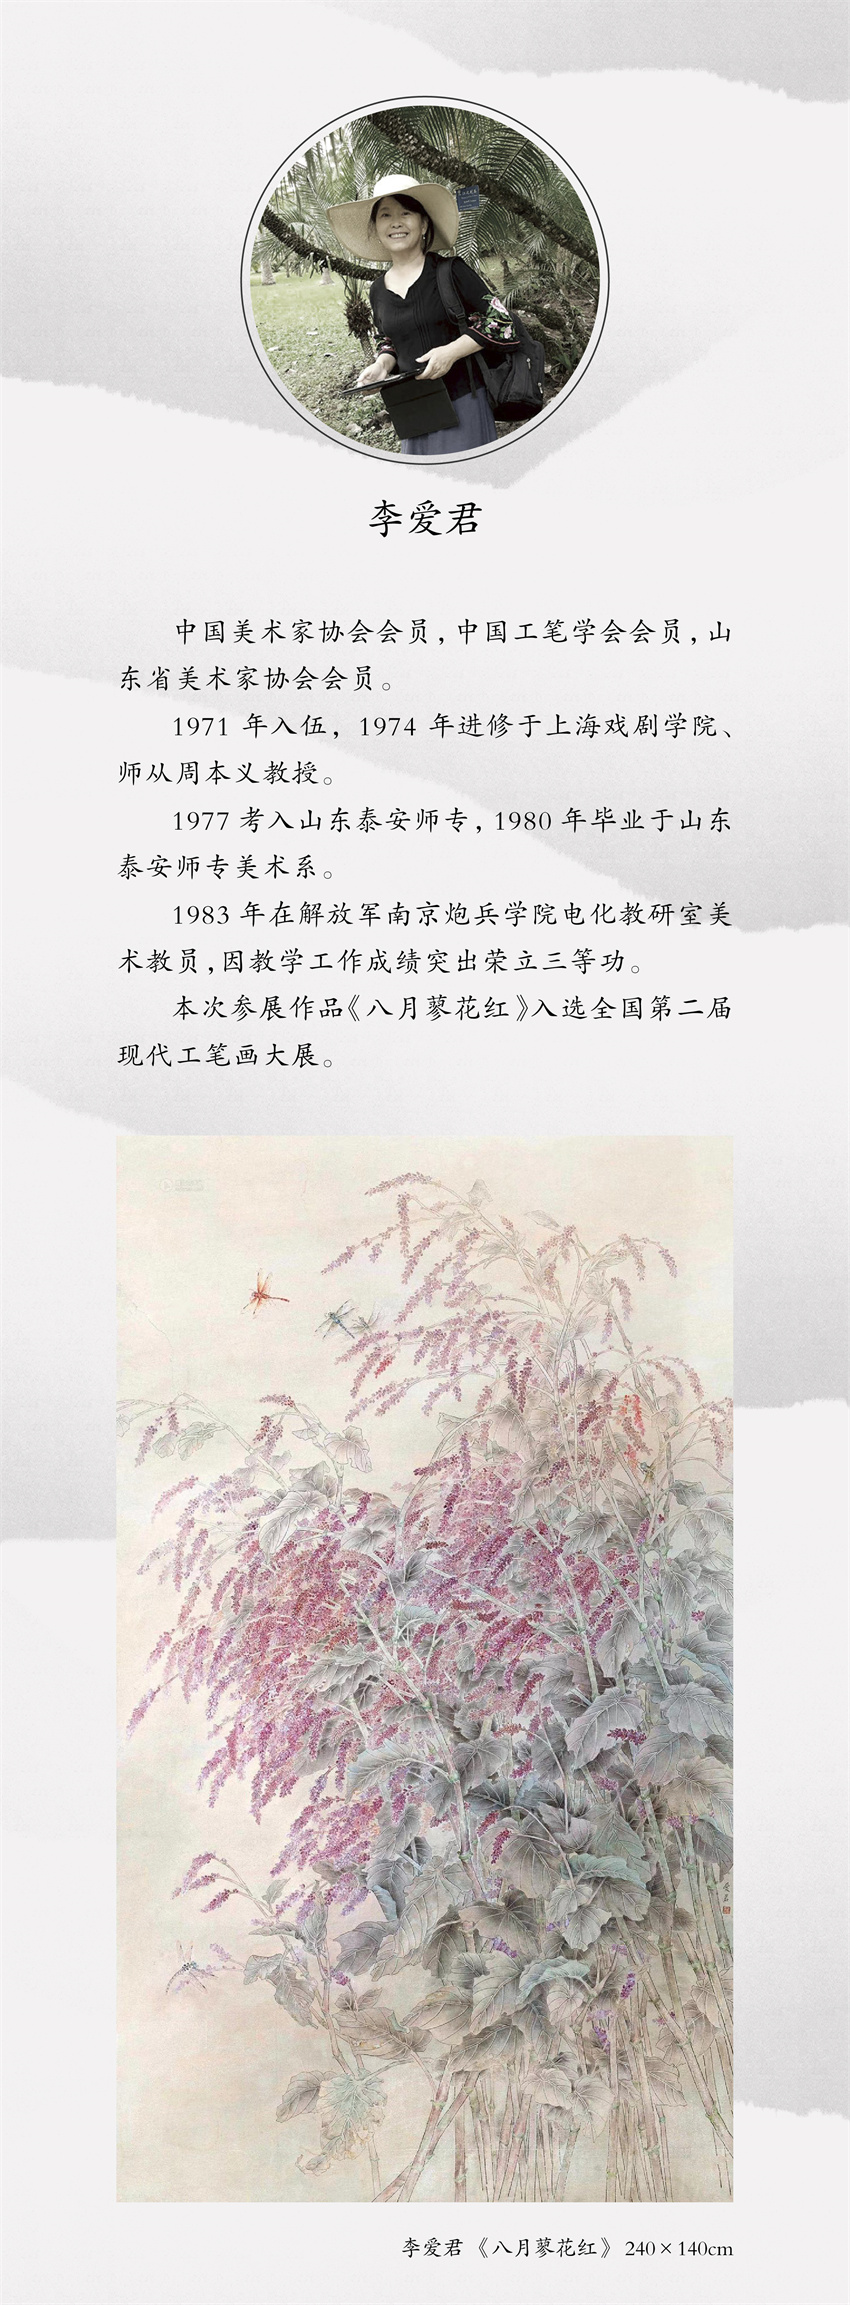 李爱君
中国美术家协会会员，中国工笔学会会员，山
东省美术家协会会员。
1971 年入伍，1974 年进修于上海戏剧学院、
师从周本义教授。
1977 考入山东泰安师专，1980 年毕业于山东
泰安师专美术系。
1983 年在解放军南京炮兵学院电化教研室美
术教员，因教学工作成绩突出荣立三等功。
本次参展作品《八月蓼花红》入选全国第二届
现代工笔画大展。
李爱君《八月蓼花红》240×140cm